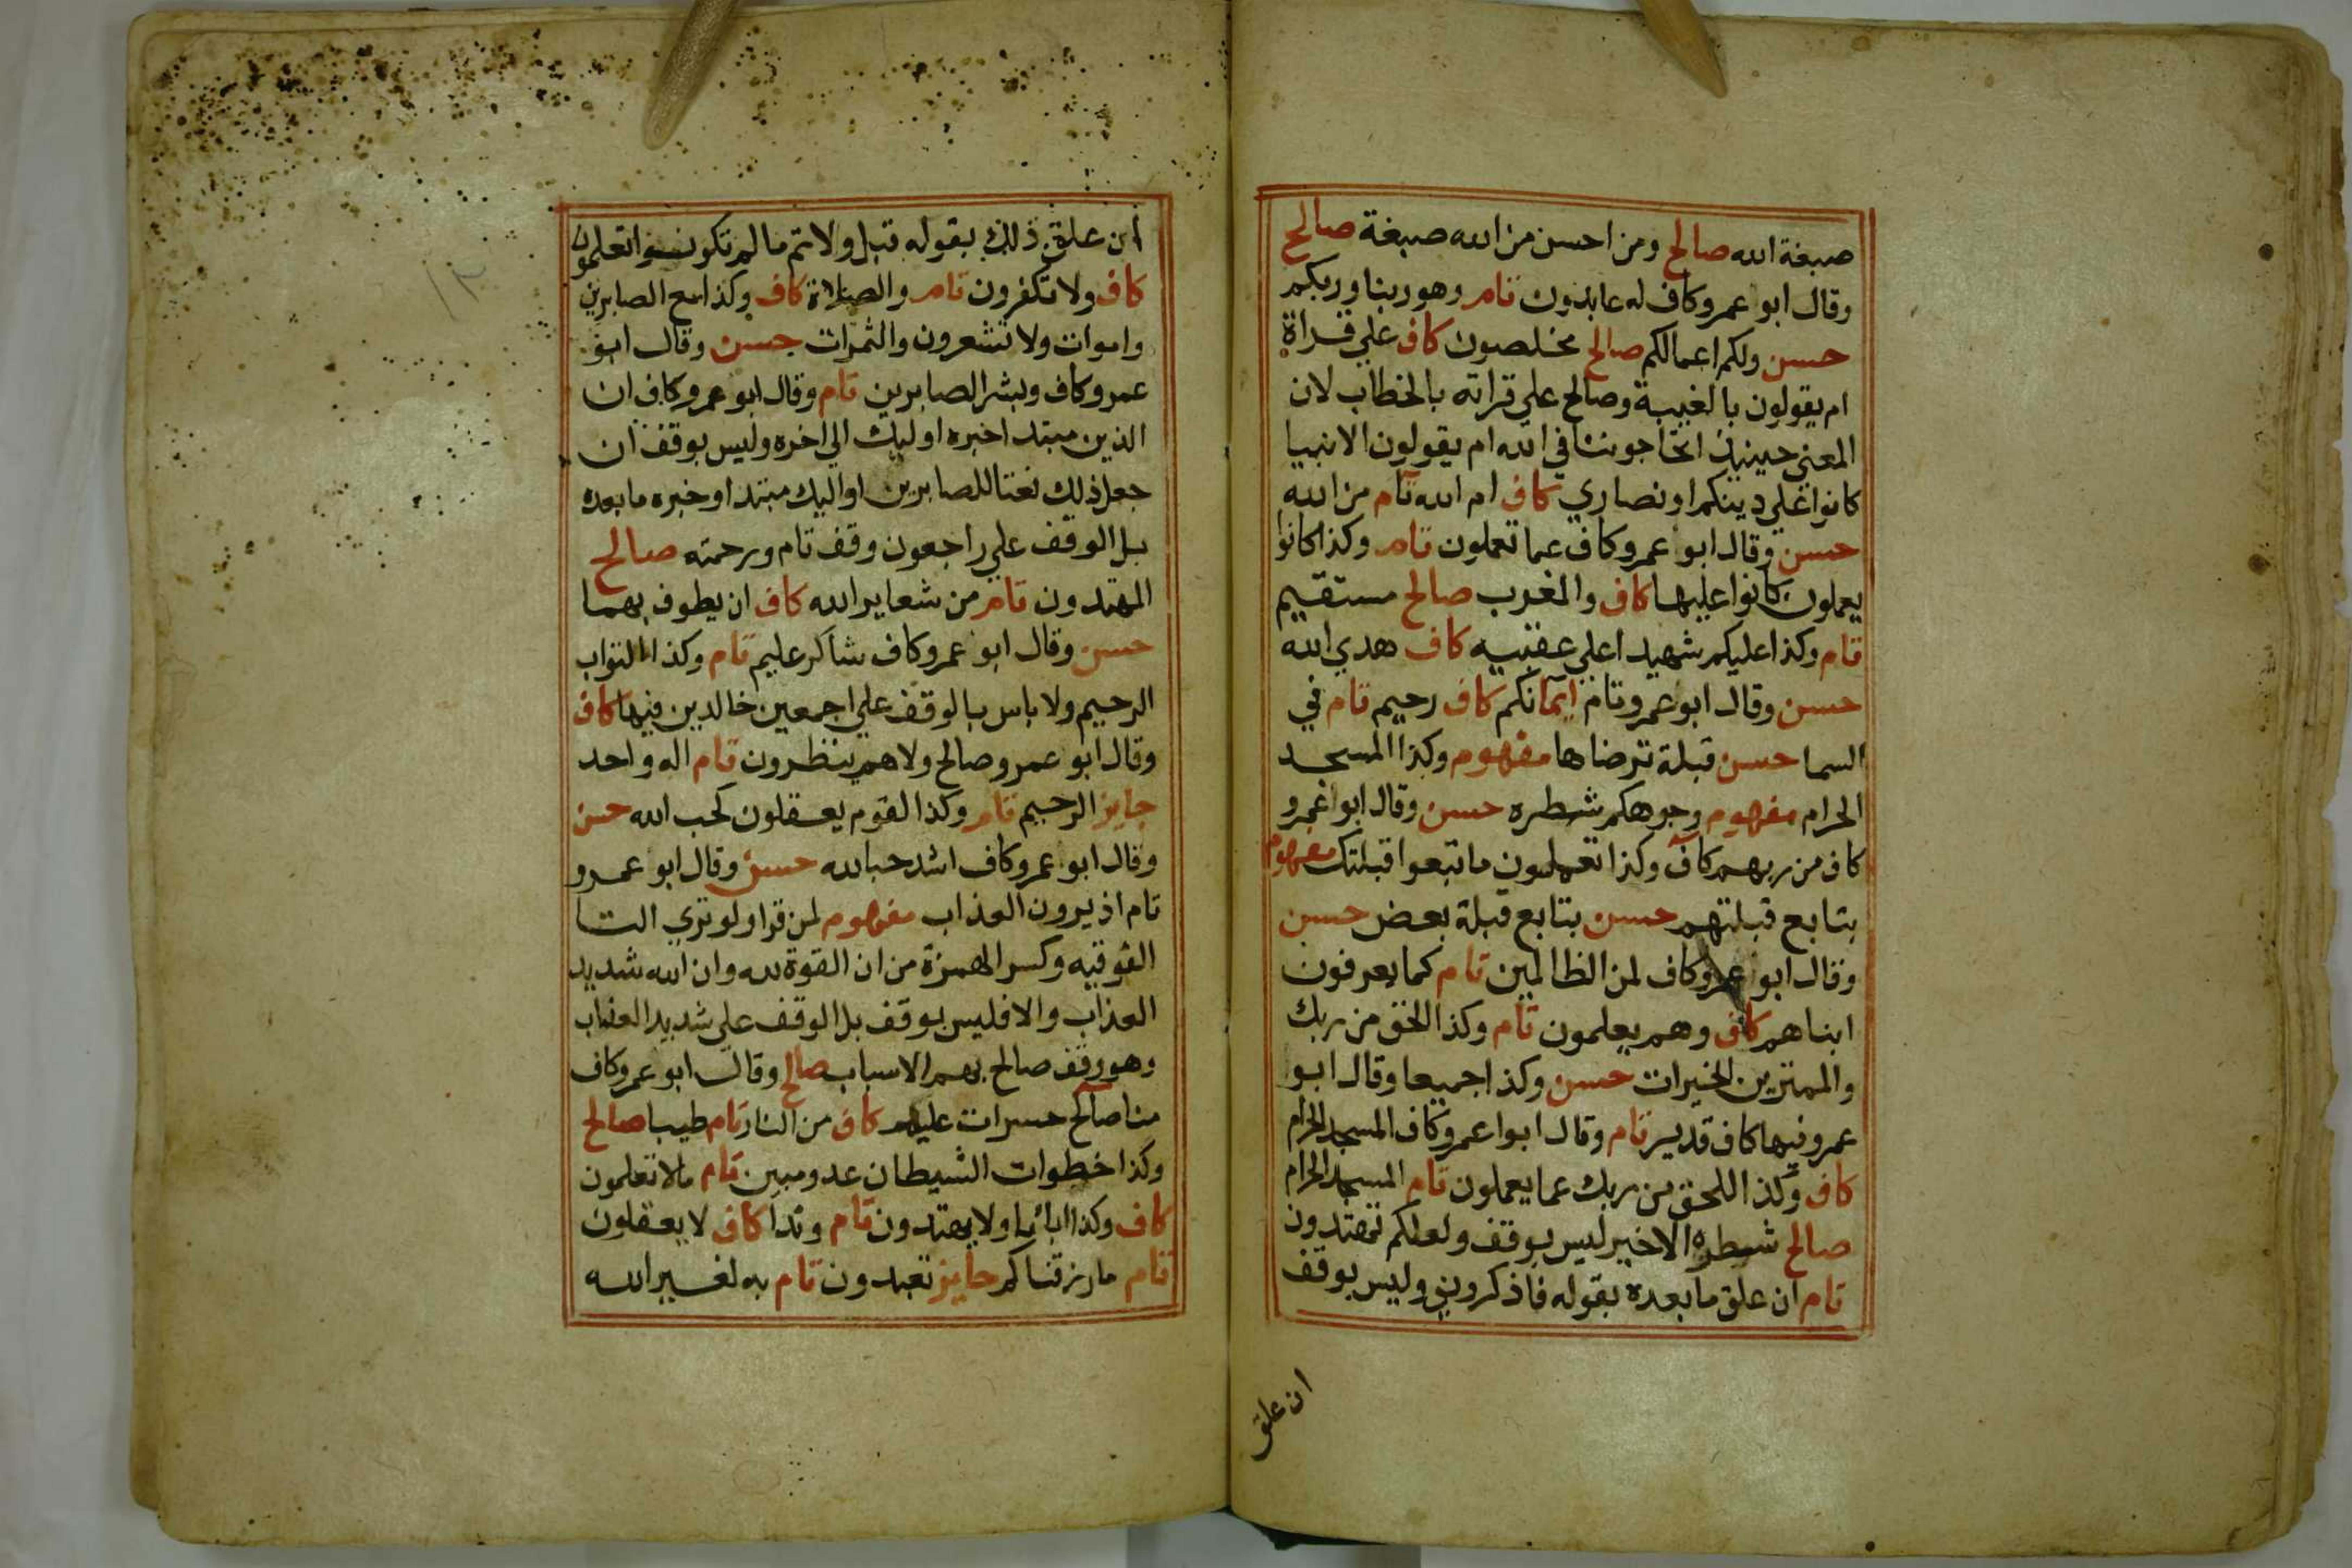 صبغة الله صالح ومن احسن من الله صبغة صالح
وقال ابو عمرو كاف له عابدون تام وهو ربنا وربكم
حسن ولكم اعمالكم صالح مخلصون كاف علي قراة
ام يقولون بالغيبة وصالح علي قراته بالخطاب لان
المعني حينيذ اتحاجوننا في الله ام يقولون الانبيا
كانوا علي دينكم او نصاري كاف ام الله تام من الله
حسن وقال ابو عمرو كاف عما تعملون تام وكذا كانوا
يعملون كانوا عليها كاف والمغرب صالح مستقيم
تام وكذا عليكم شهيدا علي عقبيه كاف هدي الله
حسن وقال ابو عمرو تام ايمانكم كاف رحيم تام في
السما حسن قبلة ترضاها مفهوم وكذا المسجد
الحرام مفهوم وجوهكم شطره حسن وقال ابوا عمرو
كاف من ربهم كاف وكذا تعملون ما تبعوا قبلتك مفهوم
بتابع قبلتهم حسن بتابع قبلة بعض حسن
وقال ابوا عمرو كاف لمن الظالمين تام كما يعرفون
ابناهم كاف وهم يعلمون تام وكذا الحق من ربك
والممترين الخيرات حسن وكذا جميعا وقال ابو
عمرو فيها كاف قدير تام وقال ابوا عمرو كاف المسجد الحرام
كاف وكذا اللحق من ربك عما يعملون تام المسجد الحرام
صالح شطره الاخير ليس بوقف ولعلكم تهتدون
تام ان علق ما بعده بقوله فاذكروني وليس بوقف
ان علق
ان علق ذلك بقوله قبل ولاتم ما لم تكونوا تعلمون
كاف ولا تكفرون تام والصلاة كاف وكذا مع الصابرين
واموات ولا تشعرون والثمرات حسن وقال ابو
عمرو كاف وبشر الصابرين تام وقال ابو عمرو كاف ان
الذين مبتدا خبره اوليك الي اخره وليس بوقف ان
جعل ذلك نعتا للصابرين او اليك مبتدا وخبره ما بعده
بل الوقف علي راجعون وقف تام ورحمته صالح
المهتدون تام من شعاير الله كاف ان يطوف بهما
حسن وقال ابو عمرو كاف شاكر عليم تام وكذا التواب
الرحيم ولا باس بالوقف علي اجمعين خالدين فيها كاف
وقال ابو عمرو صالح ولا هم ينظرون تام اله واحد
جايز الرحيم تام وكذا لقوم يعقلون كحب الله حسن
وقال ابو عمرو كاف اشد حبا لله حسن وقال ابو عمرو
تام اذ يرون العذاب مفهوم لمن قرا ولو تري التا
الفوقيه وكسر الهمزة من ان القوة لله وان الله شديد
العذاب والا فليس بوقف بل الوقف علي شديد العذاب
وهو وقف صالح بهم الاسباب صالح وقال ابو عمرو كاف
منا صالح حسرات عليهم كاف من النار تام طيبا صالح
وكذا خطوات الشيطان عدو مبين تام مالا تعلمون
كاف وكذا ابائنا ولا يهتدون تام وندا كاف لا يعقلون
تام ما رزقناكم جايز تعبدون تام به لغير الله